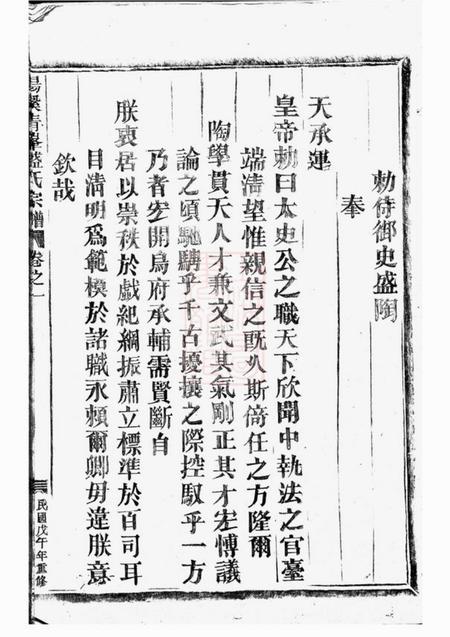 勅侍御史盛陶
奉
天承運
皇帝勅曰太史公之職天下欣聞中執法之官臺
端清望惟親信之旣久斯倚任之方隆爾
陶學貫天人才兼文武其氣剛正其才宏博議
論之頃馳騁乎千古擾攘之際控馭乎一方
乃者宏開烏府承輔需賢斷自
朕衷居以崇秩於戲紀綱振肅立標準於百司耳
目清明爲範模於諸職永賴爾卿毋違朕意
欽哉
青峯盛氏宗譜 卷之一
民國戊午年重修